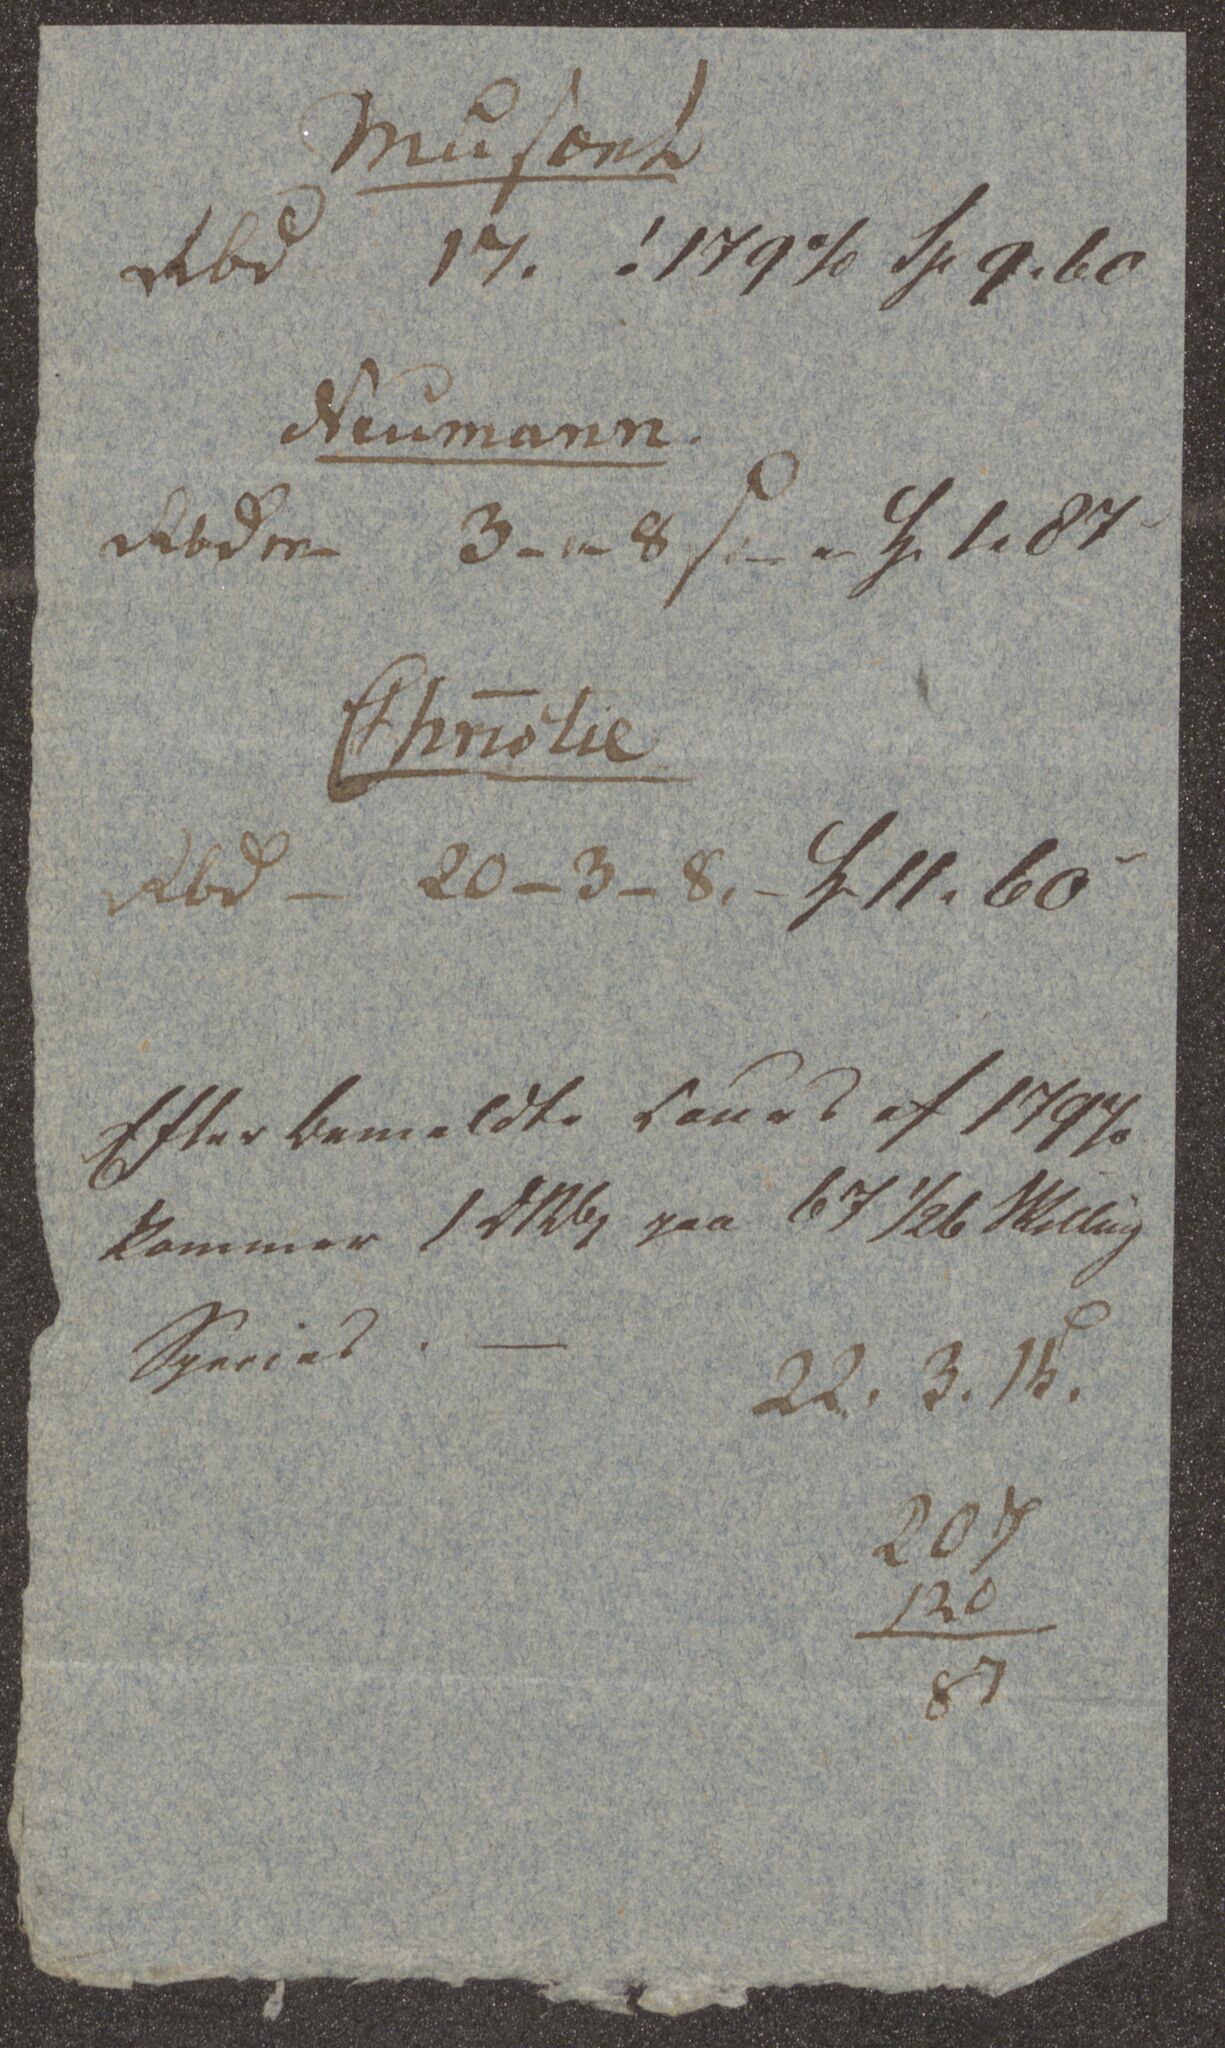 Museet
Rbd 17. : 179 % Sp 9. 60
Neumann.
Rbdr 3 - " - 8 s - Sp. 1. 87
Christie
Rbd - 20 - 3 - 8. - Sp 11. 60
Efter bemeldte Cours af 179 %
kommer 1 Rbd paa 67 1/26 Skilling
Species . —
22. 3. 15.
207
120
87